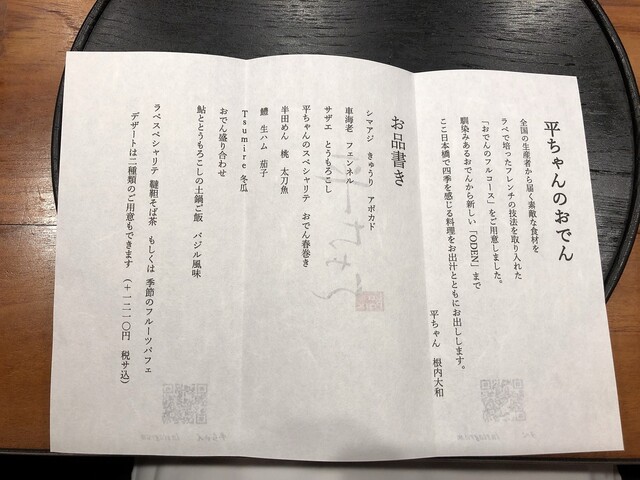 平ちゃんのおでん
全国の生産者から届く素敵な食材を
ラペで培ったフレンチの技法を取り入れた
「おでんのフルコース」をご用意しました。
馴染みあるおでんから新しい「ODEN」まで
ここ日本橋で四季を感じる料理をお出汁とともにお出しします。
平ちゃん 根内大和
お品書き
シマアジ きゅうり アボカド
車海老 フェンネル
サザエ とうもろこし
平ちゃんのスペシャリテ おでん春巻き
半田めん 桃 太刀魚
鱧 生ハム 茄子
Tsumire 冬瓜
おでん盛り合わせ
鮎ととうもろこしの土鍋ご飯 バジル風味
ラペスペシャリテ 韃靼そば茶 もしくは 季節のフルーツパフェ
デザートは二種類のご用意もできます (+一二一〇円 税サ込)